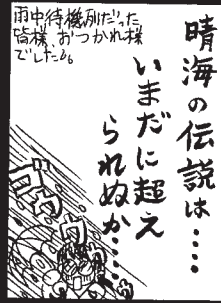 晴海の伝説は‥‥
いまだに超え
られぬか‥‥
雨中待機列だった
皆様、おつかれ様
でした